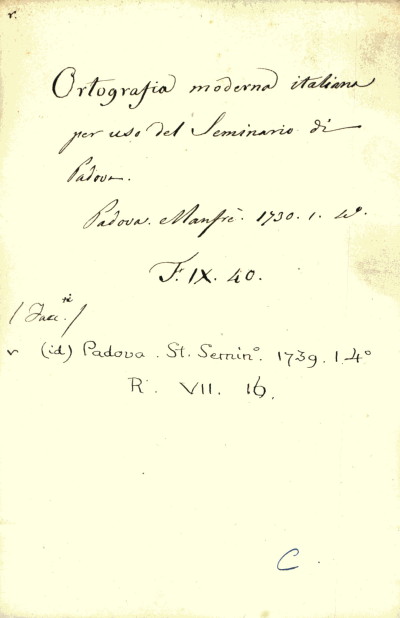 r.
Ortografia moderna italiana
per uso del Seminario di
Padova.
Padova. Manfrè. 1730. 1. 4º.
F. IX. 40.
v (id) Padova. St. Seminº. 1739. 1. 4º
R. VII. 16.
C.